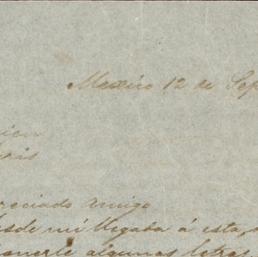 Mexico 12 de Sep
reciado Amigo
esde mi llegada á esta,
ponerle algunas letras